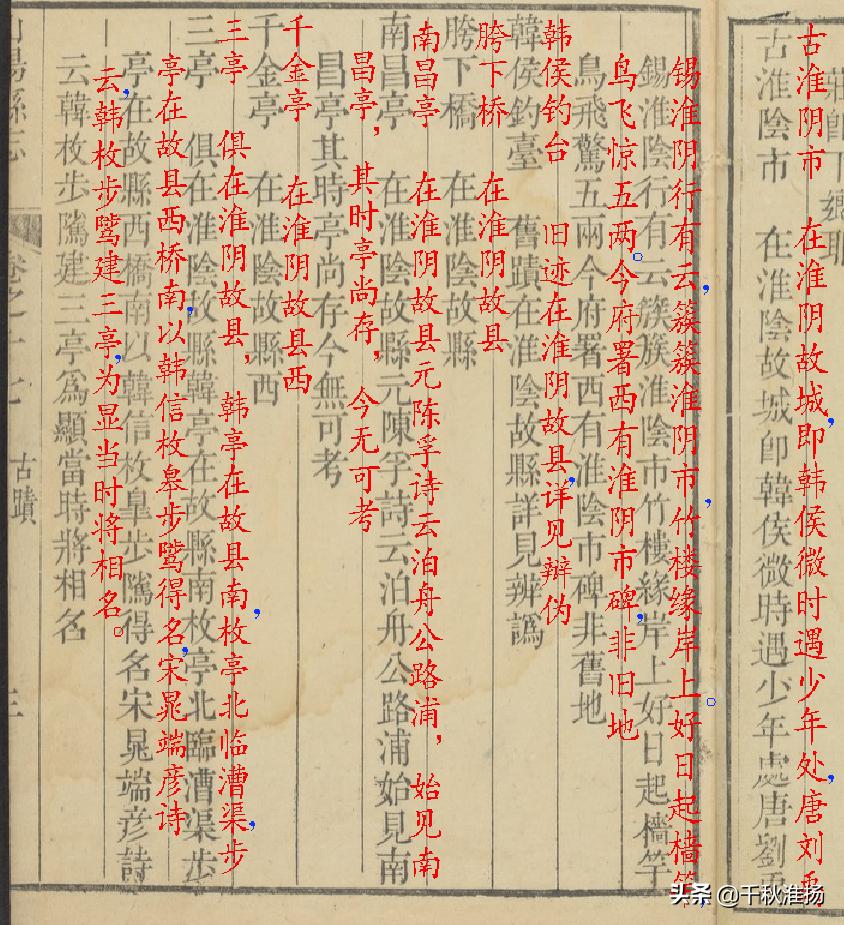 莊卽下鄉耶
古淮阴市 在淮阴故城，即韩侯微时遇少年处，唐刘禹
古淮陰市 在淮陰故城卽韓侯微時遇少年處唐劉禹
锡淮阴行有云，簇簇淮阴市，竹楼缘岸上。好日起樯竿，
錫淮陰行有云簇簇淮陰市竹樓緣岸上好日起檣竿
鸟飞惊五两。今府署西有淮阴市碑，非旧地
鳥飛驚五兩今府署西有淮陰市碑非舊地
韩侯钓台 旧迹在淮阴故县，详见辩伪
韓侯釣臺 舊蹟在淮陰故縣詳見辨譌
胯下桥 在淮阴故县
胯下橋 在淮陰故縣
南昌亭 在淮阴故县元陈孚诗云泊舟公路浦，始见南
南昌亭 在淮陰故縣元陳孚詩云泊舟公路浦始見南
昌亭，其时亭尚存，今无可考
昌亭其時亭尚存今無可考
千金亭 在淮阴故县西
千金亭 在淮陰故縣西
三亭 俱在淮阴故县，韩亭在故县南，枚亭北临漕渠，步
三亭 俱在淮陰故縣韓亭在故縣南枚亭北臨漕渠步
亭在故县西桥南，以韩信枚皋步骘得名，宋晁端彦诗
亭在故縣西橋南以韓信枚皐步隲得名宋晁端彥詩
云，韩枚步骘建三亭，为显当时将相名。
云韓枚步隲建三亭爲顯當時將相名
山陽縣志
卷之十七
古蹟
三
头条 @千秋淮扬